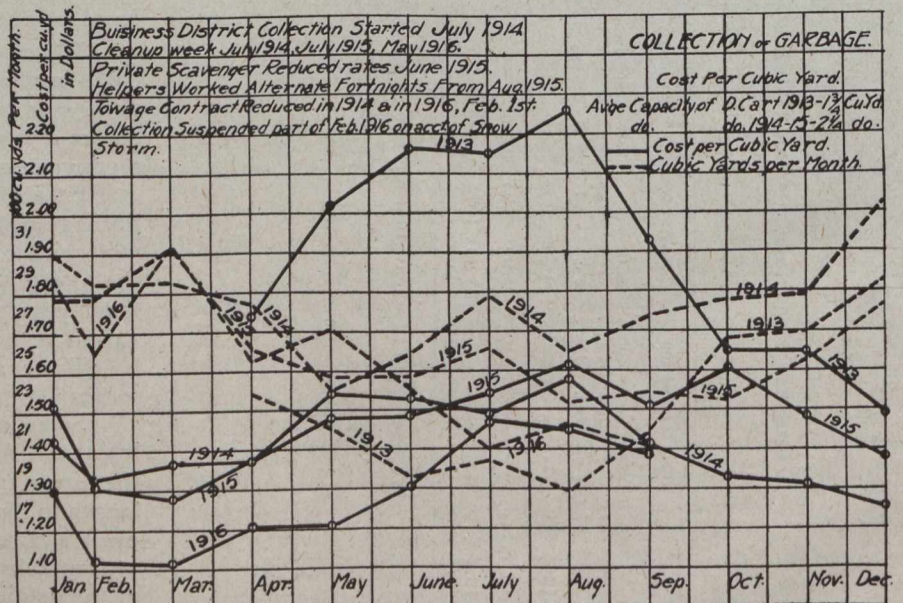 100 cu. yds Per Month.
Cost per cu. yd
in Dollars.
Buisiness District Collection Started July 1914
Cleanup week July 1914, July 1915, May 1916.
Private Scavenger Reduced rates June 1915.
Helpers Worked Alternate Fortnights From Aug. 1915.
Towage Contract Reduced in 1914 & in 1916, Feb. 1st.
Collection Suspended part of Feb. 1916 on acct of Snow
Storm.
COLLECTION OF GARBAGE.
Cost Per Cubic Yard.
Avge Capacity of D. Cart 1913-1¾ Cu Yd.
do. do. 1914-15-2¼ do.
Cost per Cubic Yard.
Cubic Yards per Month.
2.20
2.10
2.00
31
1.90
29
1.80
27
1.70
25
1.60
23
1.50
21
1.40
19
1.30
17
1.20
1.10
1913
1916
1914
1914
1914
1913
1915
1915
1915
1913
1913
1916
1914
1915
1914
1915
1916
Jan. Feb. Mar. Apr. May June. July Aug. Sep. Oct. Nov. Dec.